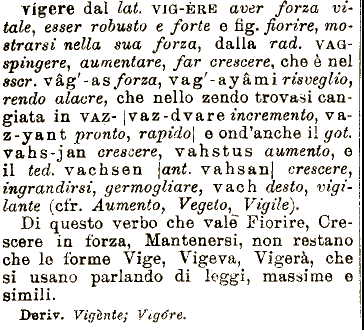 vígere dal lat. VIG-ÈRE aver forza vi-
tale, esser robusto e forte e fig. fiorire, mo-
strarsi nella sua forza, dalla rad. VAG-
spingere, aumentare, far crescere, che è nel
sscr. vâg'-as forza, vag'-ayâmi risveglio,
rendo alacre, che nello zendo trovasi can-
giata in VAZ- |vaz-dvare incremento, va-
z-yant pronto, rapido| e ond'anche il got.
vahs-jan crescere, vahstus aumento, e
il ted. vachsen |ant. vahsan| crescere,
ingrandirsi, germogliare, vach desto, vigi-
lante (cfr. Aumento, Vegeto, Vigile).
Di questo verbo che vale Fiorire, Cre-
scere in forza, Mantenersi, non restano
che le forme Vige, Vigeva, Vigerà, che
si usano parlando di leggi, massime e
simili.
Deriv. Vigènte; Vigóre.